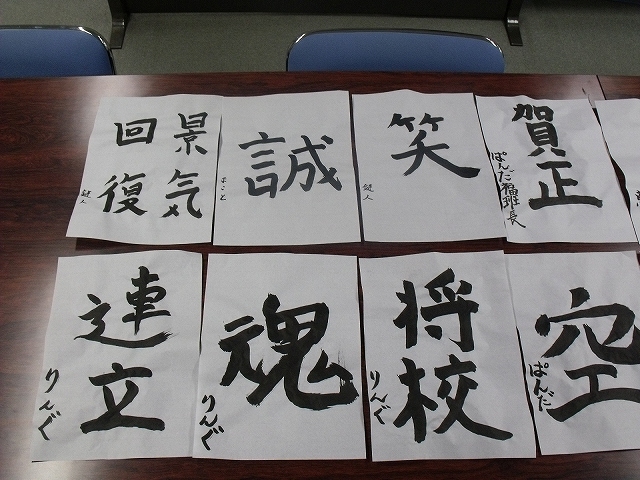 景気
回復
鍵人
誠
まこと
笑
鍵人
賀正
ぱんだ福班長
連立
りんぐ
魂
りんぐ
将校
りんぐ
空
ぱんだ